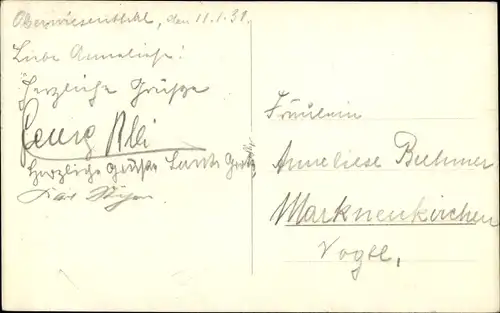 Oberwiesenthal, den 11.1.31.
Liebe Anneliese!
Herzliche Grüße
Georg
Herzliche Grüße
Fräulein
Anneliese Buhmer
Markneukirchen
Vogtl.